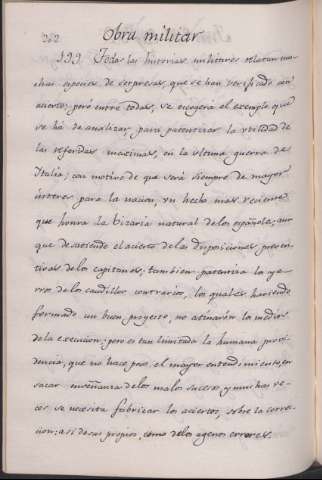 362 Obra militar
199. Todas las historias militares relatan mu-
chas especies de sorpresas, que se han verificado con
acierto; pero entre todas, se escogerá el exemplo, que
se há de analizar, para patentizar la utilidad de
las referidas maximas, en la ultima guerra de
Italia; con motivo de que será siempre de mayor
interes para la nacion, un hecho mas reciente
que honra la bizaria natural de los españoles; aun
que desatiende el acierto de las disposiciones preven-
tivas de los capitanes; tambien patentiza los yer-
ros de los caudillos contrarios, los quales, haviendo
formado un bien proyecto, no atinarón los medios
de la execucion; pero es tan limitada la humana provi-
dencia, que no hace poco, el mayor entendimiento, en
sacar enseñanza de los malos sucesos y muchas ve-
ces se necesita fabricar los aciertos, sobre la correc-
cion; asi de sus propios, como de los agenos errores.